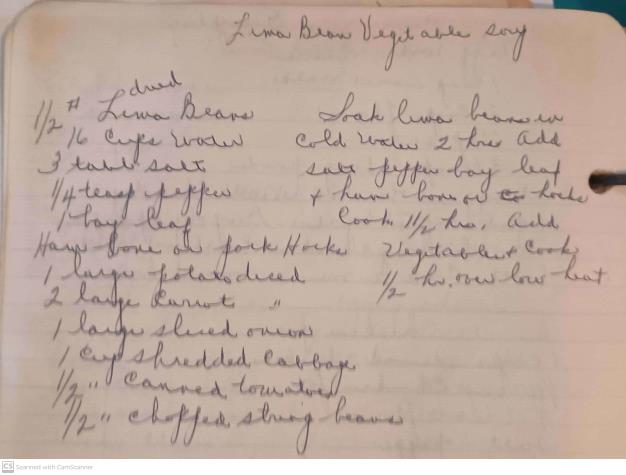 Lima Bean Vegetable soup
dried
1/2 # Lima Beans
16 cups water
3 table salt
1/4 teasp pepper
1 bay leaf
Ham bone or pork Hocks
1 large potato diced
2 large Carrot "
1 large sliced onion
1 cup shredded Cabbage
1/2 " Canned tomatoes
1/2 " chopped string beans
Soak lima beans in
cold water 2 hrs Add
salt pepper bay leaf
+ ham bone or hocks
Cook 1 1/2 hrs. Add
Vegetables + Cook
1/2 hr. over low heat
CS Scanned with CamScanner